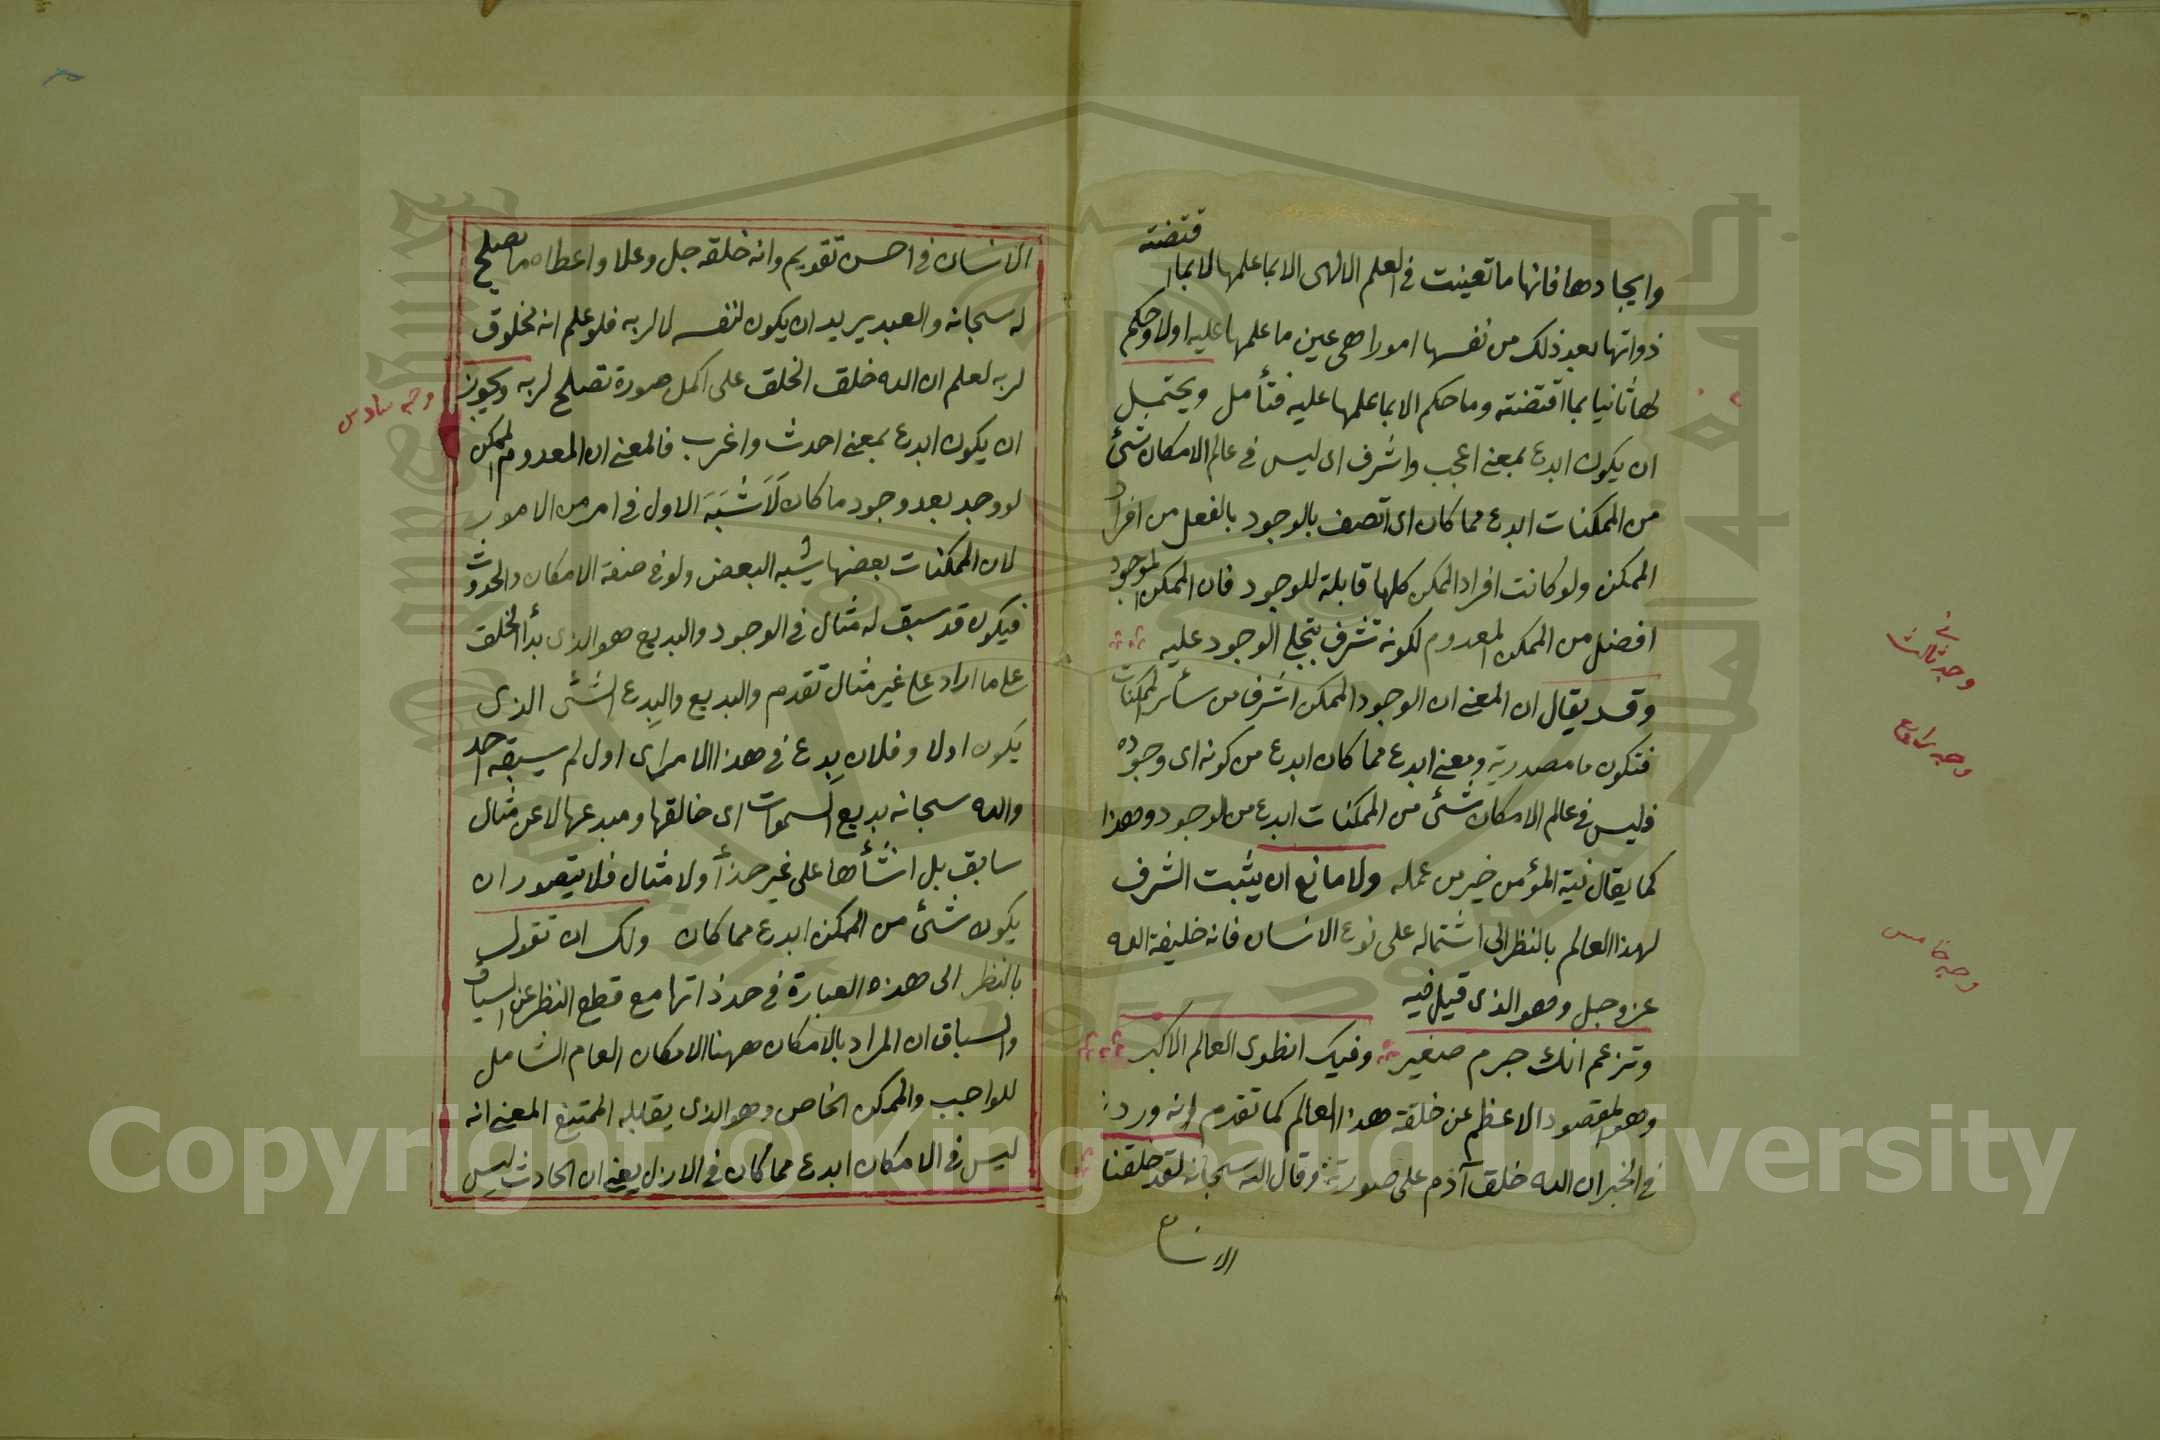 وايجادها فانها ما تعينت في العلم الالهى الا بما علمها لا بما اقتضته
ذواتها بعد ذلك من نفسها امورا هى عين ما علمها عليه اولا وحكم
لها ثانيا بما اقتضته وما حكم الا بما علمها عليه فتأمل ويحتمل
ان يكون ابدع بمعنى اعجب واشرف اى ليس في عالم الامكان شئ
من الممكنات ابدع مما كان اى اتصف بالوجود بالفعل من افراد
الممكن ولو كانت افراد الممكن كلها قابلة للوجود فان الممكن الموجود
افضل من الممكن المعدوم لكونه تشرف بتجلى الوجود عليه
وقد يقال ان المعنى ان الوجود الممكن اشرف من سائر الممكنات
فتكون ما مصدرية ومعنى ابدع مما كان ابدع من كونه اى وجوده
فليس في عالم الامكان شئ من الممكنات ابدع من الوجود وهذا
كما يقال نية المؤمن خير من عمله ولا مانع ان يثبت الشرف
لهذا العالم بالنظر الى اشتماله على نوع الانسان فانه خليفة الله
عز وجل وهو الذى قيل فيه
وتزعم انك جرم صغير وفيك انطوى العالم الاكبر
وهو المقصود الاعظم من خلقة هذا العالم كما تقدم انه ورد
في الخبر ان الله خلق آدم على صورته وقال الله سبحانه لقد خلقنا
الانسان
وجه ثالث
وجه رابع
وجه خامس
الانسان في احسن تقويم وانه خلقه جل وعلا واعطاه ما يصلح
له سبحانه والعبد يريد ان يكون لنفسه لا لربه فلو علم انه مخلوق
لربه لعلم ان الله خلق الخلق على اكمل صورة تصلح لربه ويجوز
ان يكون ابدع بمعنى احدث واغرب فالمعنى ان المعدوم الممكن
لو وجد بعد وجود ما كان لَاَشْبَهَ الاول في امر من الامور
لان الممكنات بعضها يشبه البعض ولو في صفة الامكان والحدوث
فيكون قد سبق له مثال في الوجود والبديع هو الذى بدأ الخلق
على ما اراد على غير مثال تقدم والبديع والبدع الشئ الذى
يكون اولا وفلان بدع في هذا الامر اى اول لم يسبقه احد
والله سبحانه بديع السموات اى خالقها ومبدعها لا عن مثال
سابق بل انشأها على غير حذاء ولا مثال فلا يتصور ان
يكون شئ من الممكن ابدع مما كان ولك ان تقول
بالنظر الى هذه العبارة في حد ذاتها مع قطع النظر عن السياق
والسباق ان المراد بالامكان ههنا الامكان العام الشامل
للواجب والممكن الخاص وهو الذى يقابله الممتنع المعنى انه
ليس في الامكان ابدع مما كان في الازل يعنى ان الحادث ليس
وجه سادس
Copyright © King Saud University
1957